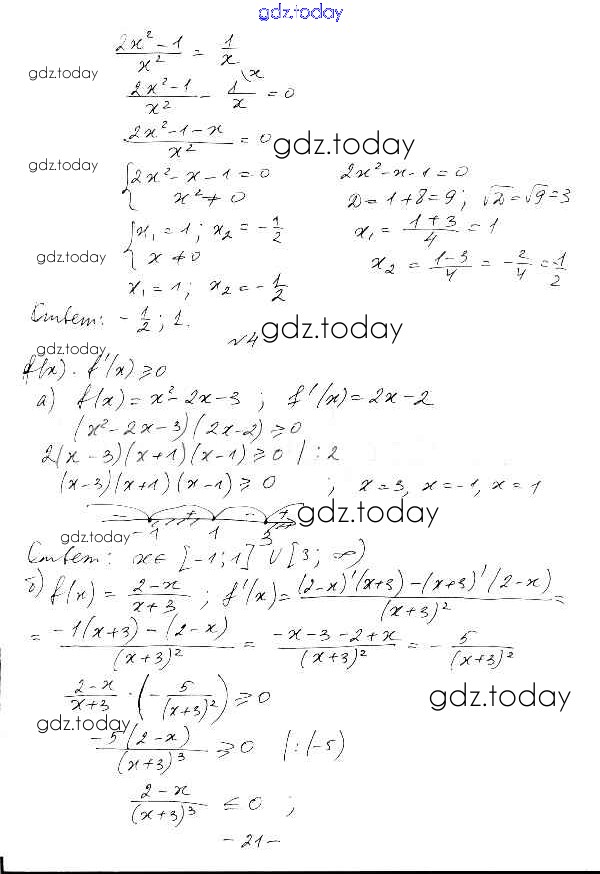 gdz.today
(2x² − 1)/x² = 1/x
gdz.today
(2x² − 1)/x² − 1\x/x = 0
(2x² − 1 − x)/x² = 0
gdz.today
gdz.today
{ 2x² − x − 1 = 0
x² ≠ 0
2x² − x − 1 = 0
D = 1 + 8 = 9; √D = √9 = 3
{ x₁ = 1; x₂ = −1/2
x ≠ 0
x₁ = (1 + 3)/4 = 1
gdz.today
x₂ = (1 − 3)/4 = −2/4 = −1/2
x₁ = 1; x₂ = −1/2
Ответ: −1/2; 1.
№4
gdz.today
gdz.today
f(x) · f'(x) ≥ 0
а) f(x) = x² − 2x − 3; f'(x) = 2x − 2
(x² − 2x − 3)(2x − 2) ≥ 0
2(x − 3)(x + 1)(x − 1) ≥ 0 / : 2
(x − 3)(x + 1)(x − 1) ≥ 0 ; x = 3, x = −1, x = 1
− + − +
gdz.today
gdz.today
−1 1 3
Ответ: x ∈ [−1; 1] ∪ [3; ∞)
б) f(x) = (2 − x)/(x + 3); f'(x) = ((2 − x)'(x + 3) − (x + 3)'(2 − x))/(x + 3)² =
= (−1(x + 3) − (2 − x))/(x + 3)² = (−x − 3 − 2 + x)/(x + 3)² = −5/(x + 3)²
(2 − x)/(x + 3) · (−5/(x + 3)²) ≥ 0
gdz.today
gdz.today
−5(2 − x)/(x + 3)³ ≥ 0 / : (−5)
(2 − x)/(x + 3)³ ≤ 0 ;
− 21 −